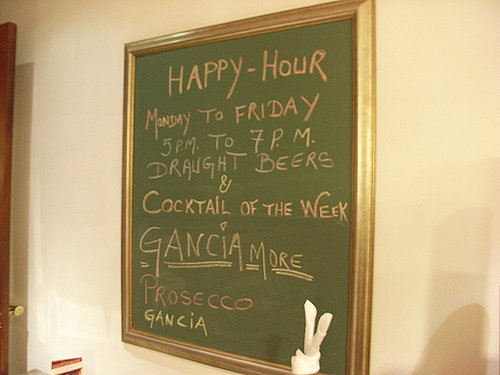 HAPPY-HOUR
MONDAY TO FRIDAY
5 P.M. TO 7 P.M.
DRAUGHT BEERS
&
COCKTAIL OF THE WEEK
GANCIA MORE
PROSECCO
GANCIA